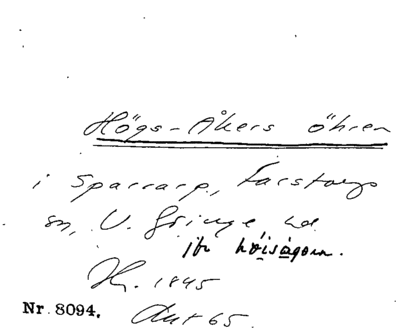 Högs-Åkers öhren
i Sparrarp, Farstorps
sn, V. Göinge hd
jfr höisågorn.
H. 1845
Nr 8094. Aut 65.